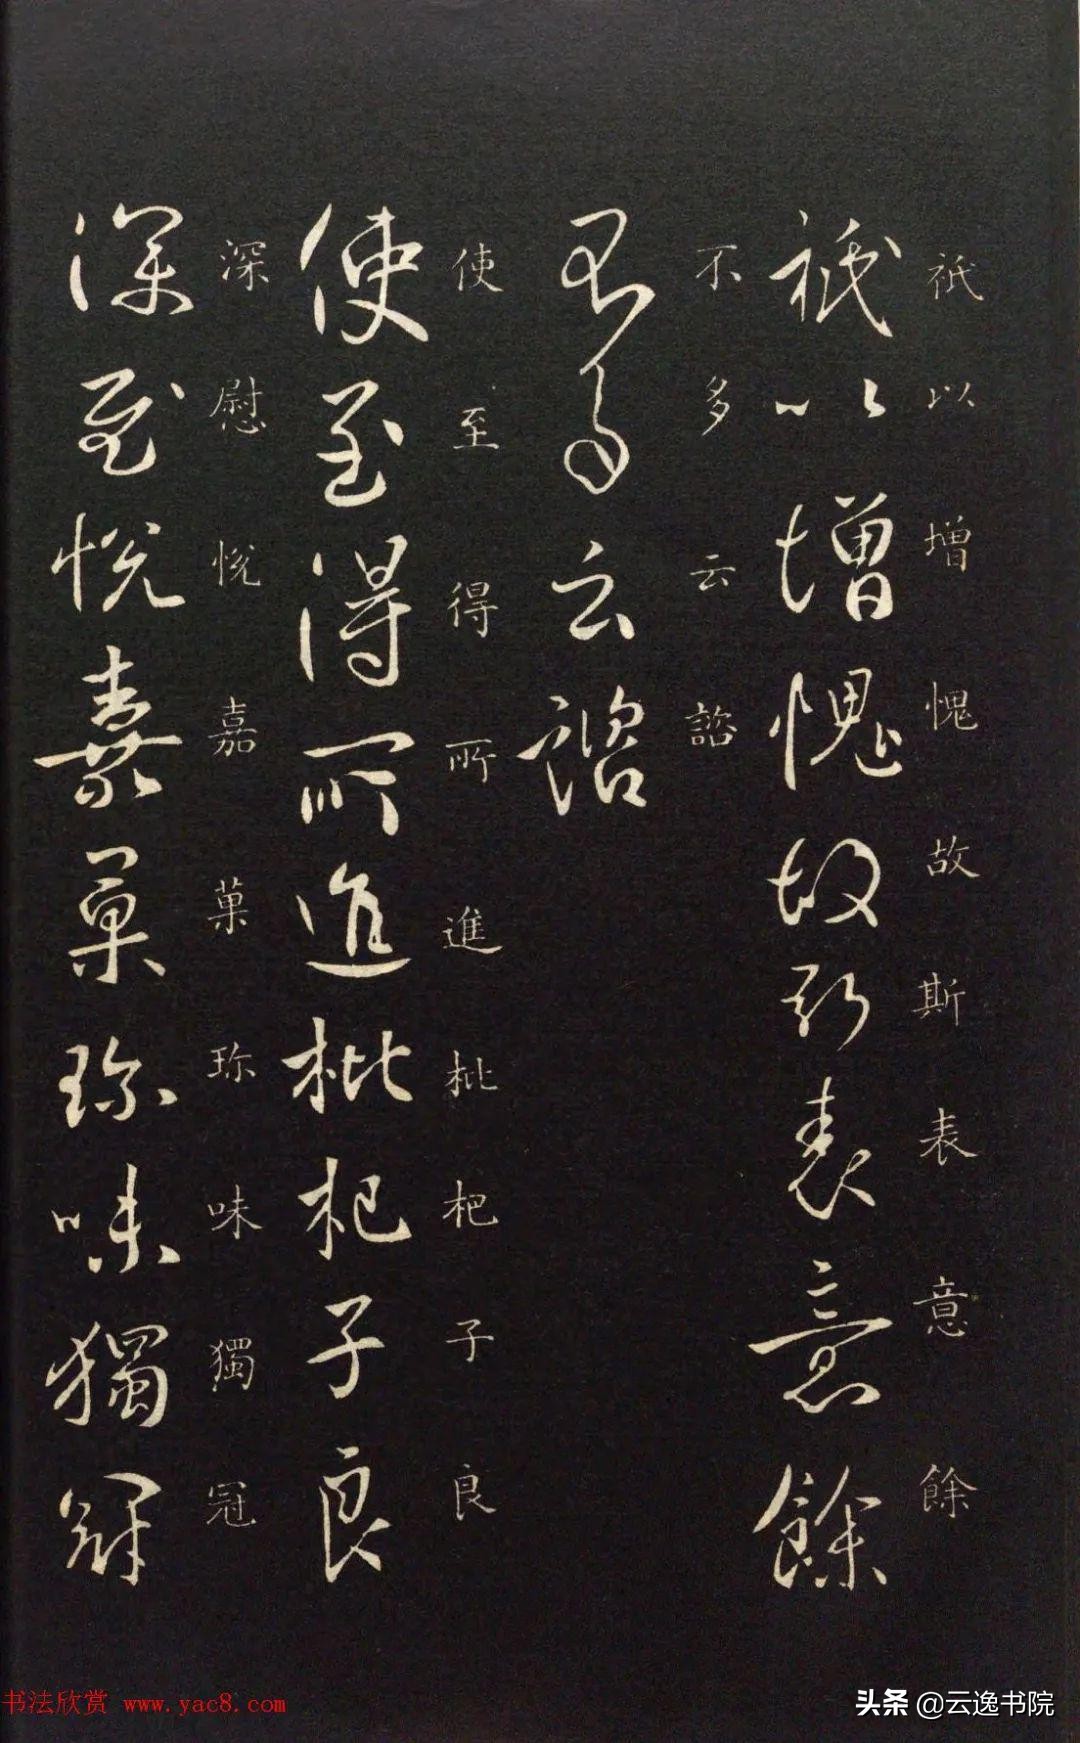 祇以增愧故斯表意餘
祇以增愧故斯表意餘
不多云諮
不多云諮
使至得所進枇杷子良
使至得所進枇杷子良
深慰悅嘉菓珎味獨冠
深慰悅嘉菓珎味獨冠
书法欣赏 www.yac8.com
头条 @云逸书院